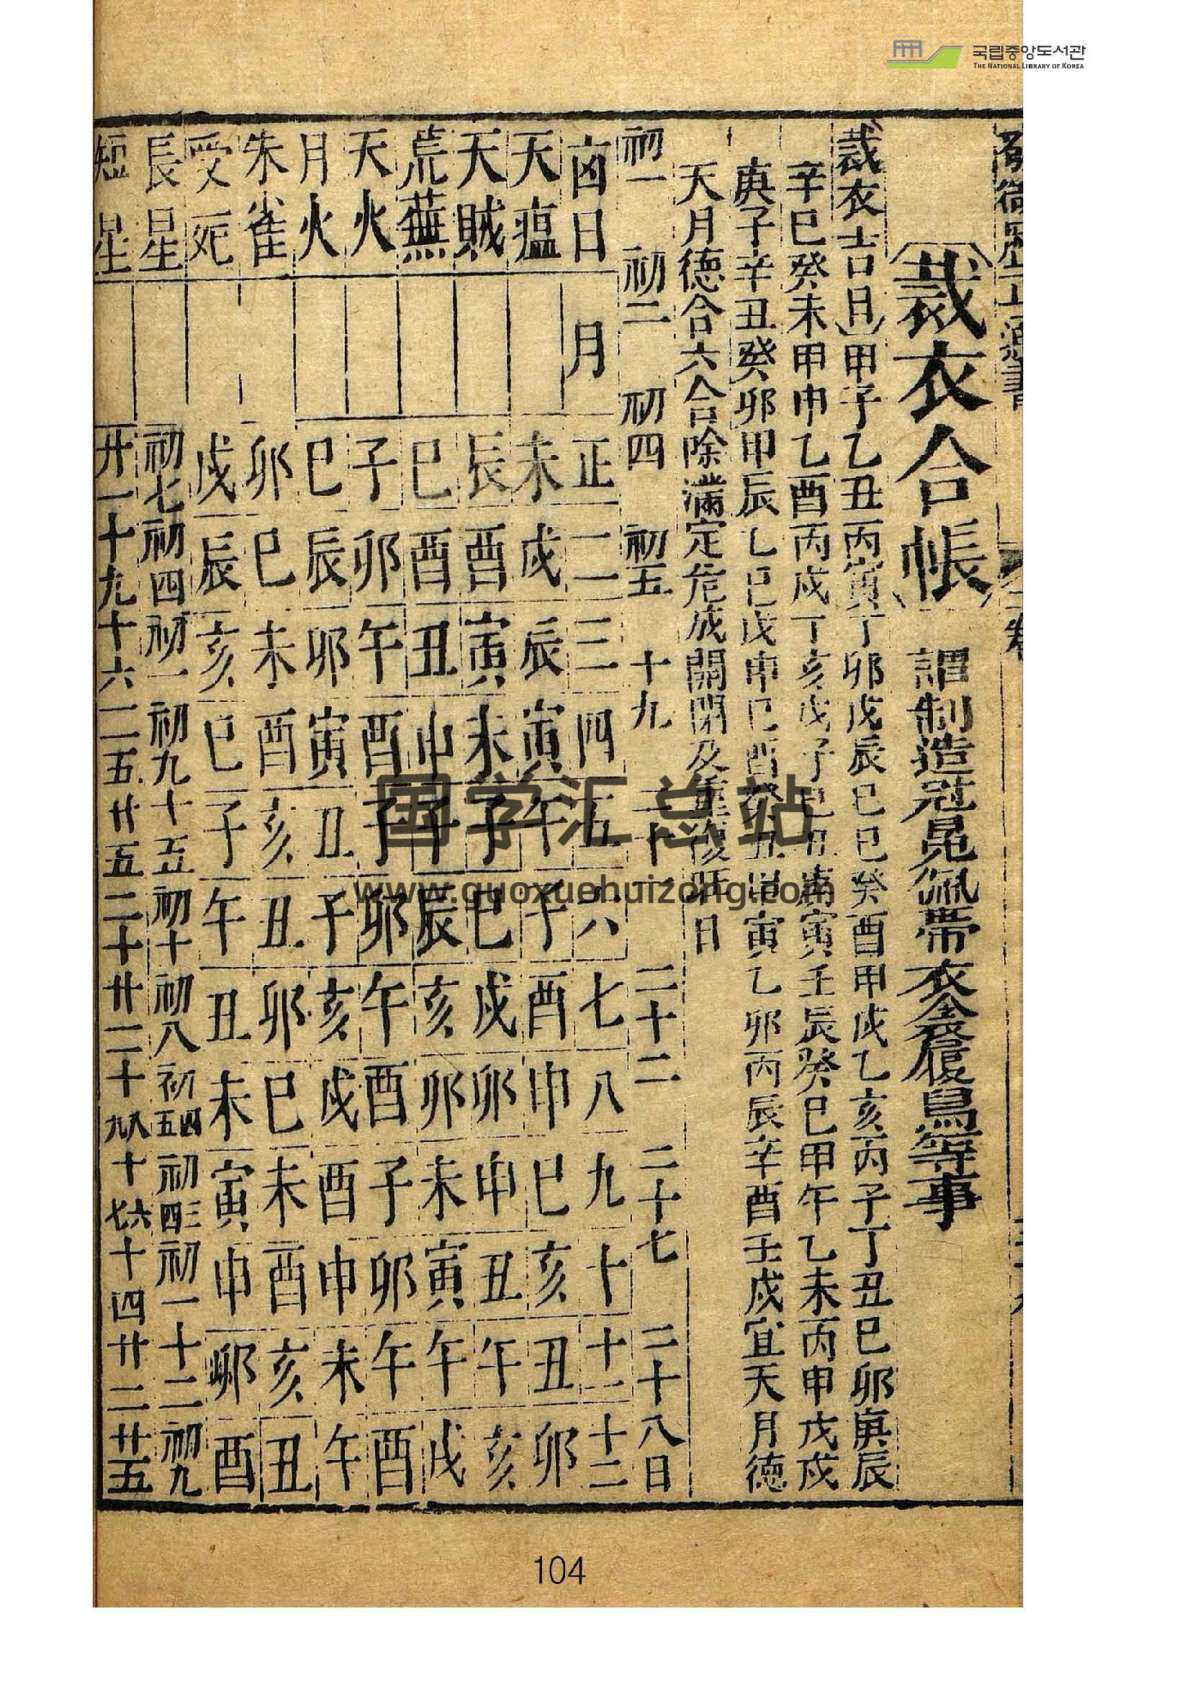 국립중앙도서관
THE NATIONAL LIBRARY OF KOREA
裁衣合帳 謂制造冠冕佩帶衣衾履舄等事
裁衣吉日 甲子乙丑丙寅丁卯戊辰己巳癸酉甲戌乙亥丙子丁丑己卯庚辰
辛巳癸未甲申乙酉丙戌丁亥戊子己丑庚寅壬辰癸巳甲午乙未丙申戊戌
庚子辛丑癸卯甲辰乙巳戊申己酉癸丑甲寅乙卯丙辰辛酉壬戌宜天月德
天月德合六合除滿定危成開閉及重復旺日
初一 初二 初四 初五 十九 二十一 二十二 二十七 二十八日
凶日 月 正 二 三 四 五 六 七 八 九 十 十一 十二
天瘟 未 戌 辰 寅 午 子 酉 申 巳 亥 丑 卯
天賊 辰 酉 寅 未 子 巳 戌 卯 申 丑 午 亥
荒蕪 巳 酉 丑 申 子 辰 亥 卯 未 寅 午 戌
天火 子 卯 午 酉 子 卯 午 酉 子 卯 午 酉
月火 巳 辰 卯 寅 丑 子 亥 戌 酉 申 未 午
朱雀 卯 巳 未 酉 亥 丑 卯 巳 未 酉 亥 丑
受死 戌 辰 亥 巳 子 午 丑 未 寅 申 卯 酉
長星 初七 初四 初一 初九 十五 初十 初八 初四五 初三四 初一 十二 初九
短星 廿一 十九 十六 二五 廿五 二十 廿二 十八九 十六七 十四 廿二 廿五
国学汇总站
www.guoxuehuizong.com
104